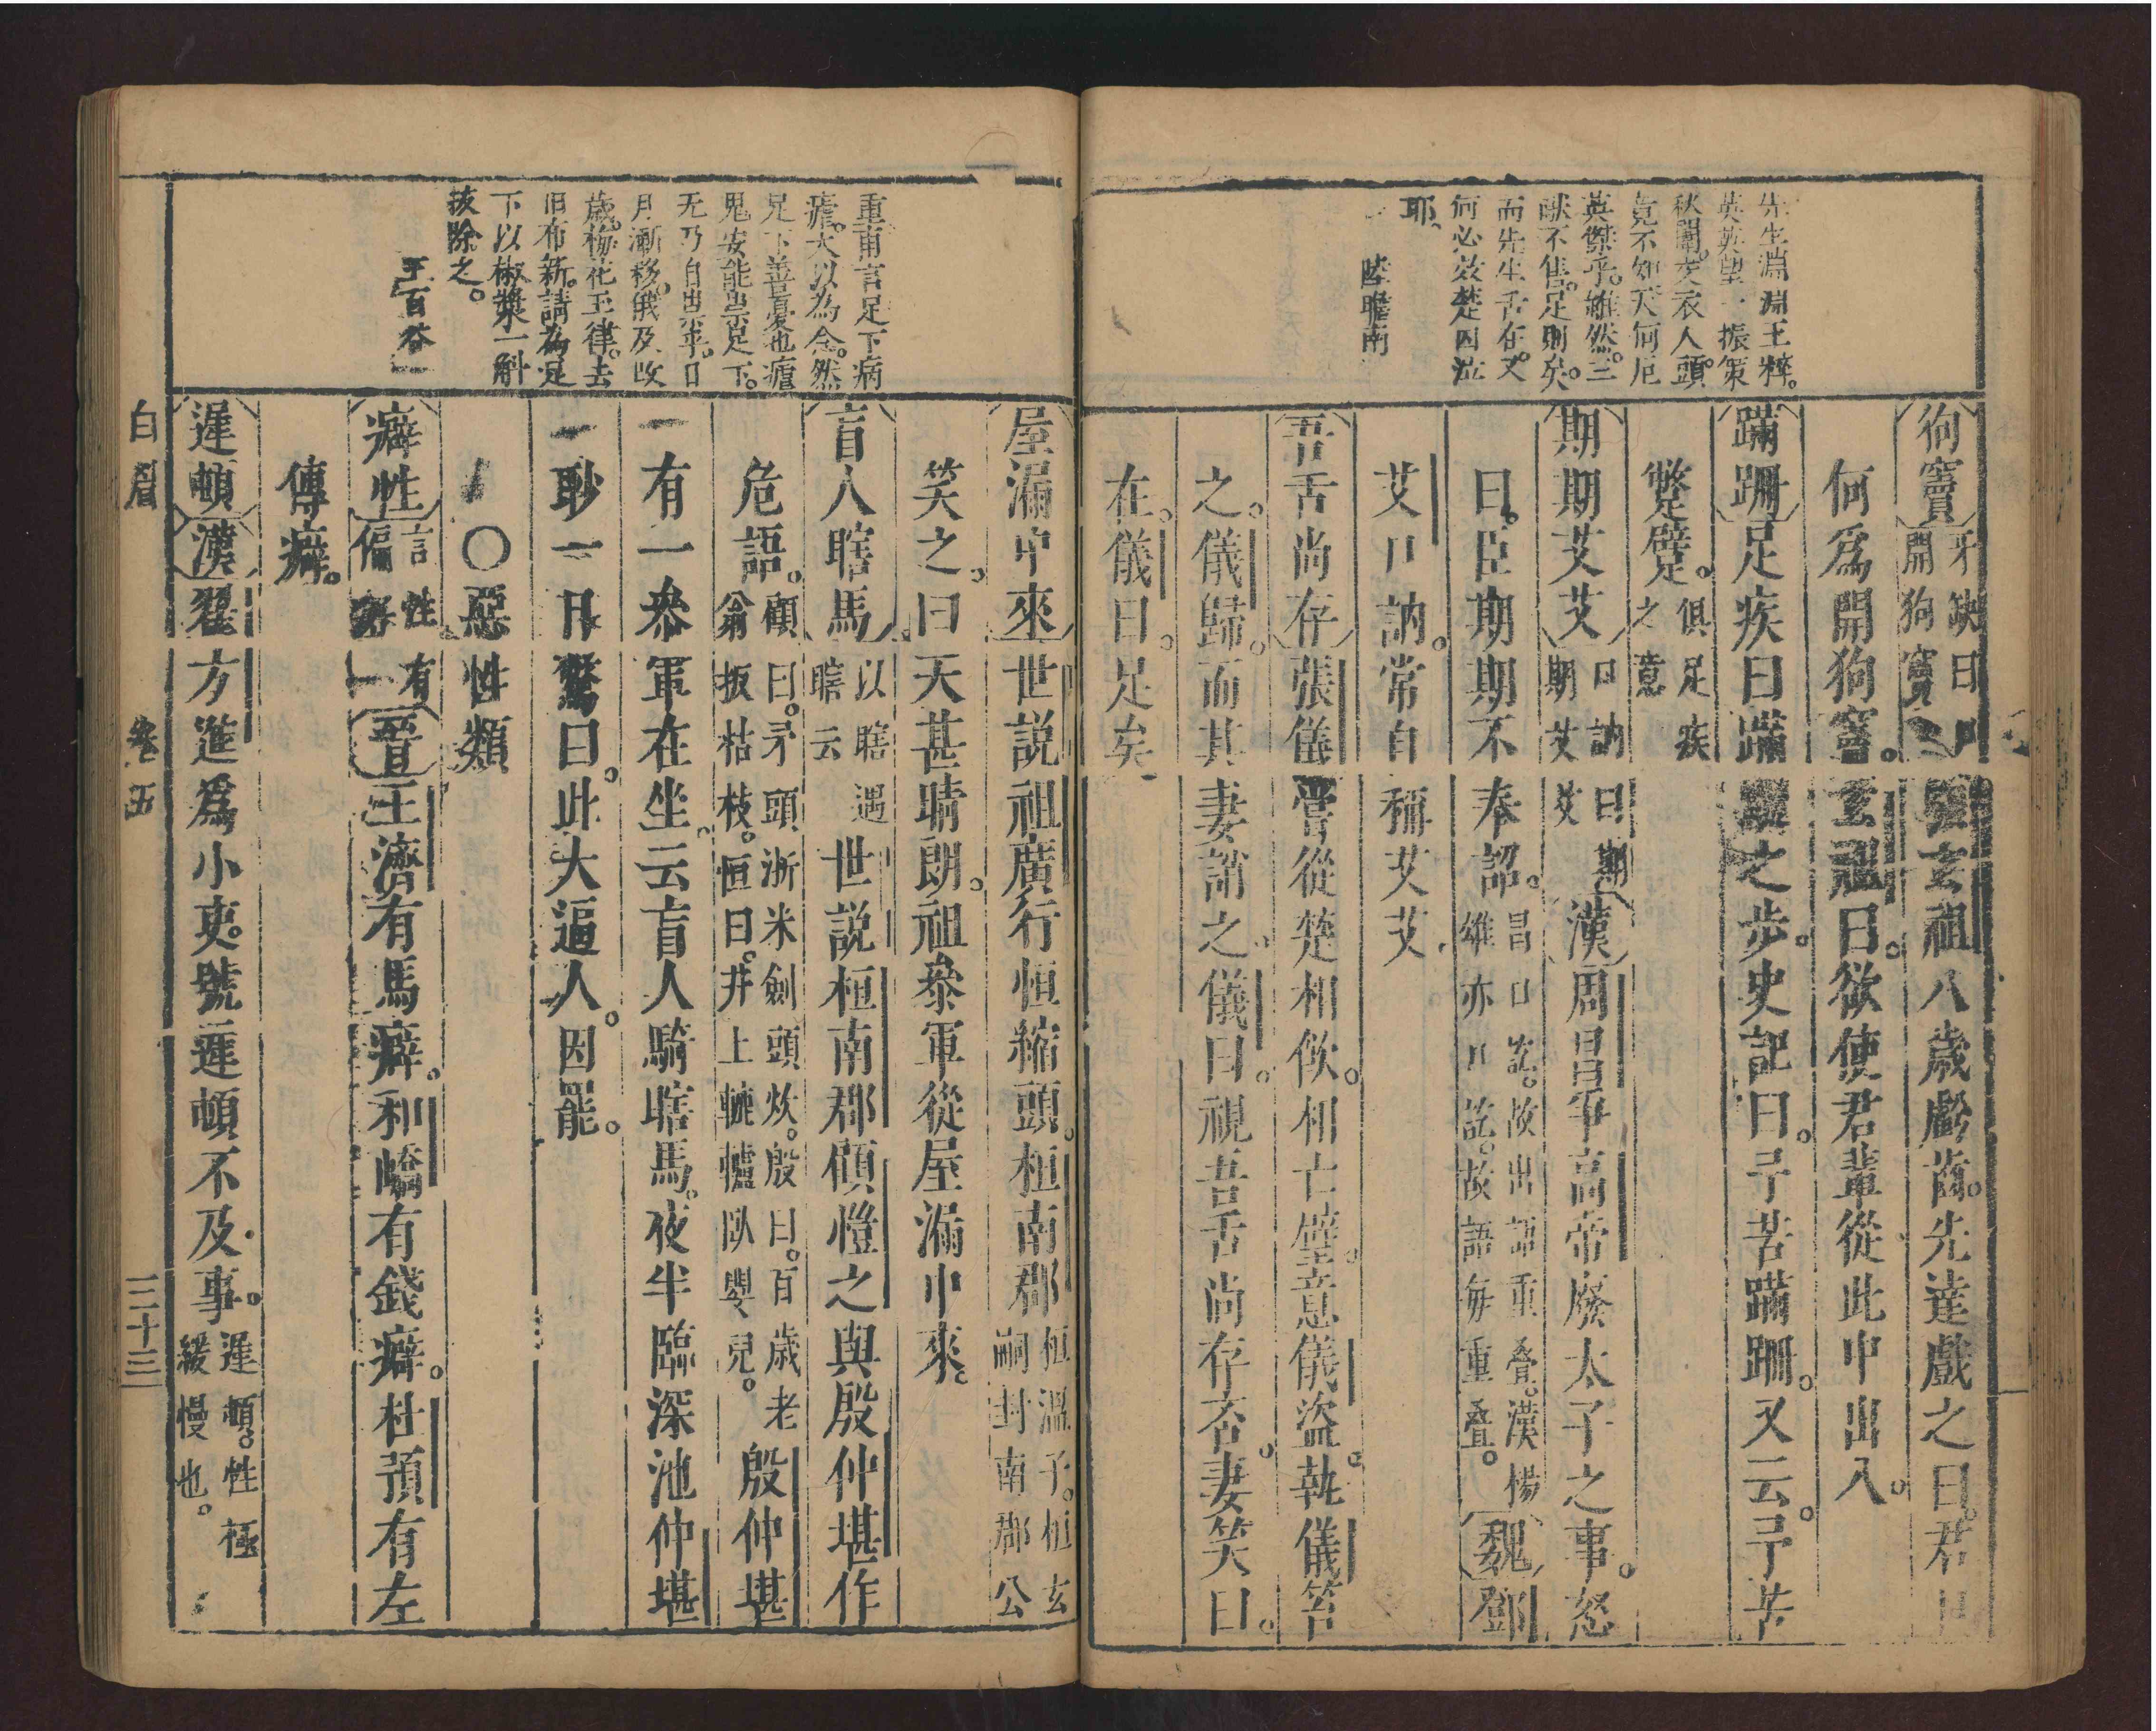 先生淵淵玉粹。
英英望一振策
秋闈。文衣人頭。
竟不知天何厄
英傑乎。雖然。三
獻不售。足則矣。
而先生舌在。又
何必效楚囚泣
耶。
陸瞻南
狗竇 牙缺曰開狗竇 張玄祖八歲虧齒。先達戲之曰。君口
何爲開狗竇。玄祖曰。欲使君輩從此中出入。
蹣跚 足疾曰蹣跚之步。史記曰。予苦蹣跚。又云。予苦
蹩躄。俱足疾之意
期期艾艾 口訥曰期期艾艾 漢周昌爭高帝廢太子之事。怒
曰。臣期期不奉詔。昌口吃。故出語重叠。漢楊雄亦口吃。故語每重叠。魏鄧
艾口訥。常自稱艾艾
吾舌尚存 張儀嘗從楚相飲。相亡璧。意儀盜。執儀笞
之。儀歸。而其妻誚之。儀曰。視吾舌尚存否。妻笑曰。
在。儀曰。足矣
重甫言足下病
瘧。大以為念。然
足下善憂也。瘧
鬼安能祟足下。
无乃自祟乎。日
月漸移。俄及改
歲。梅花玉律。去
旧布新。請為足
下以椒漿一斛
祓除之。
王百谷
屋漏中來 世說祖廣行恒縮頭。桓南郡桓溫子。桓玄嗣封南郡公
笑之。曰天甚晴朗。祖參軍從屋漏中來。
盲人瞎馬 以瞎遇瞎云 世說桓南郡顧愷之與殷仲堪作
危語。顧曰。矛頭淅米劍頭炊。殷曰。百歲老翁扳枯枝。恒曰。井上轆轤臥嬰兒。殷仲堪
有一參軍在坐。云盲人騎瞎馬。夜半臨深池。仲堪
眇一目。驚曰。此大逼人。因罷。
○惡性類
癖性 言性偏好有一 晉王濟有馬癖。和嶠有錢癖。杜預有左
傳癖。
遲頓 漢翟方進爲小吏。號遲頓不及事。遲頓。性極緩慢也。
白眉 卷五 三十三